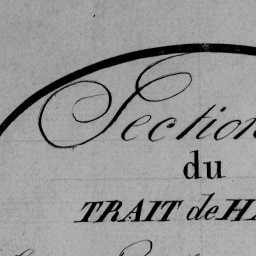 Section
du
TRAIT de HA